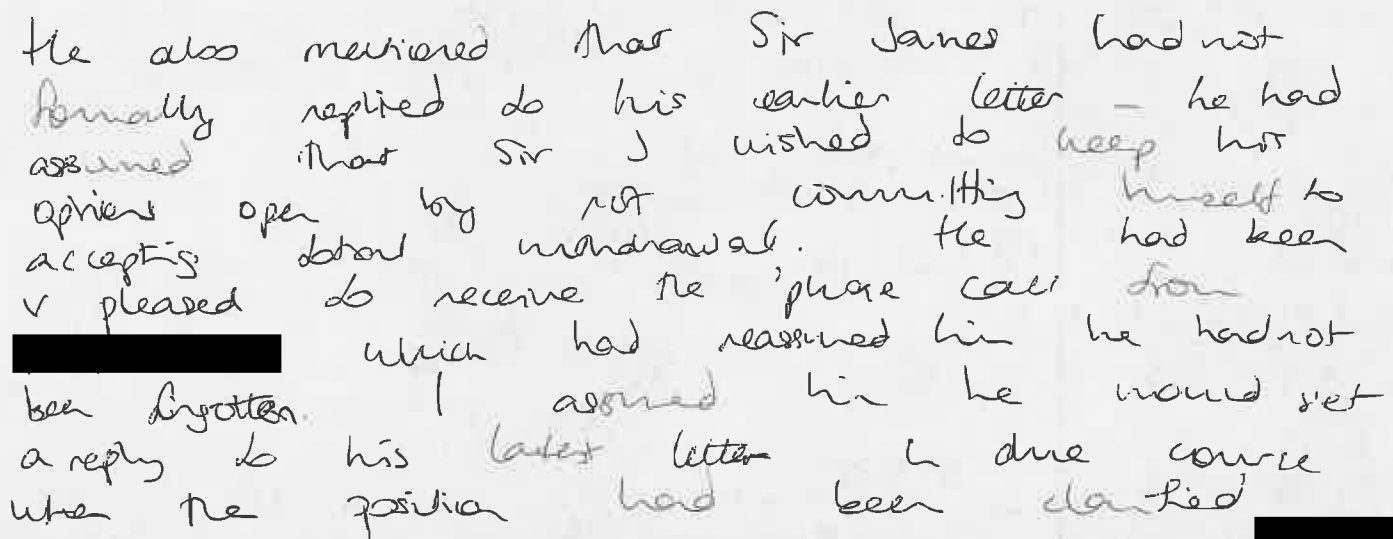 He also mentioned that Sir James had not
formally replied to his earlier letter – he had
assumed that Sir J wished to keep his
options open by not committing himself to
accepting total withdrawal. He had been
v pleased to receive the 'phone call from
which had reassured him he had not
been forgotten. I assured him he would get
a reply to his latest letter in due course
when the position had been clarified